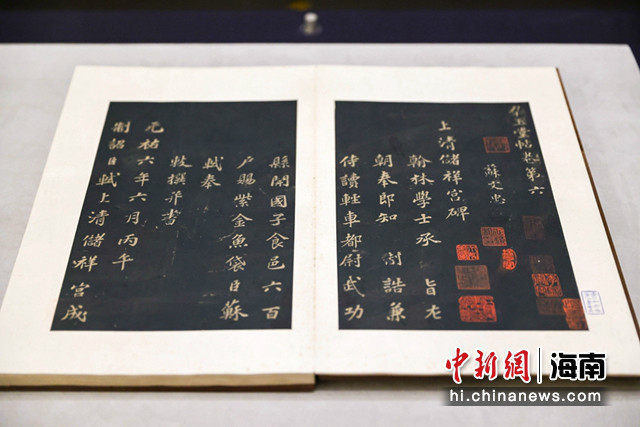 群玉堂帖卷第六
蘇文忠
上清儲祥宮碑
翰林學士承 旨左
朝奉郎知 制誥兼
侍讀輕車都尉武功
縣開國子食邑六百
戶賜紫金魚袋臣蘇
軾奉
敕撰并書
元祐六年六月丙午
制詔臣軾上清儲祥宮成
中新網 海南
hi.chinanews.com